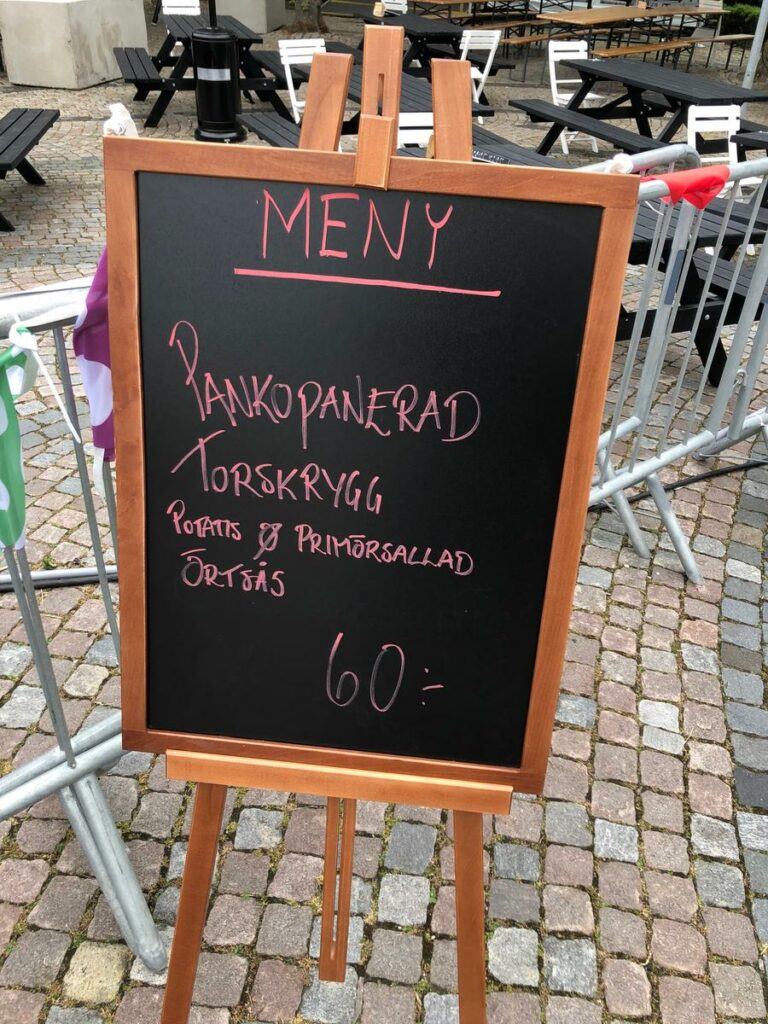 MENY
PANKOPANERAD
TORSKRYGG
POTATIS & PRIMÖRSALLAD
ÖRTSÅS
60:-